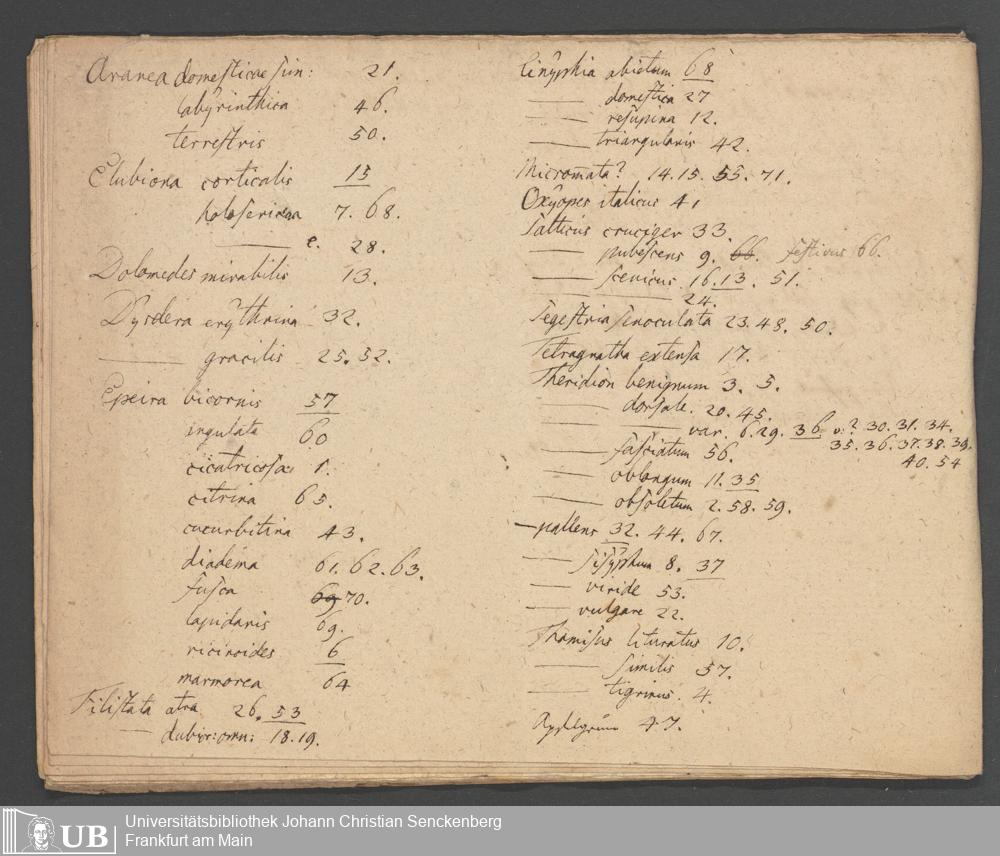 Aranea domesticae sim: 21.
labÿrinthica 46.
terrestris 50.
Clubiona corticalis 15
holosericea 7. 68.
——— e. 28.
Dolomedes mirabilis 13.
Dysdera erÿthrina 32.
——— gracilis 25. 52.
Epeira bicornis 57
ungulata 60
cicatricosa 1.
citrina 65.
cucurbitina 43.
diadema 61. 62. 63.
fusca 69 70.
lapidaris 69.
ricinoides 6
marmorea 64
Filistata atra 26. 53
—— omn: 18. 19.
Linÿphia abietum 68
—— domestica 27
—— resupina 12.
—— triangularis 42.
Micromata? 14. 15. 55. 71.
Oxÿopes italicus 41
Salticus cruciger 33.
—— pubescens 9. 66. festivus 66.
—— scenicus 16. 13. 51.
——— 24.
Segestria senoculata 23. 48. 50.
Tetragnatha extensa 17.
Theridion benignum 3. 5.
—— dorsale. 20. 45.
——— var. 6. 29. 36 v: ? 30. 31. 34.
35. 36. 37. 38. 39.
40. 54
—— fasciatum 56.
—— oblongum 11. 35
—— obsoletum 2. 58. 59.
— pallens 32. 44. 67.
—— Sisÿphum 8. 37
—— viride 53.
—— vulgare 22.
Thomisus lituratus 10.
—— similis 57.
—— tigrinus. 4.
47.
UB
Universitätsbibliothek Johann Christian Senckenberg
Frankfurt am Main